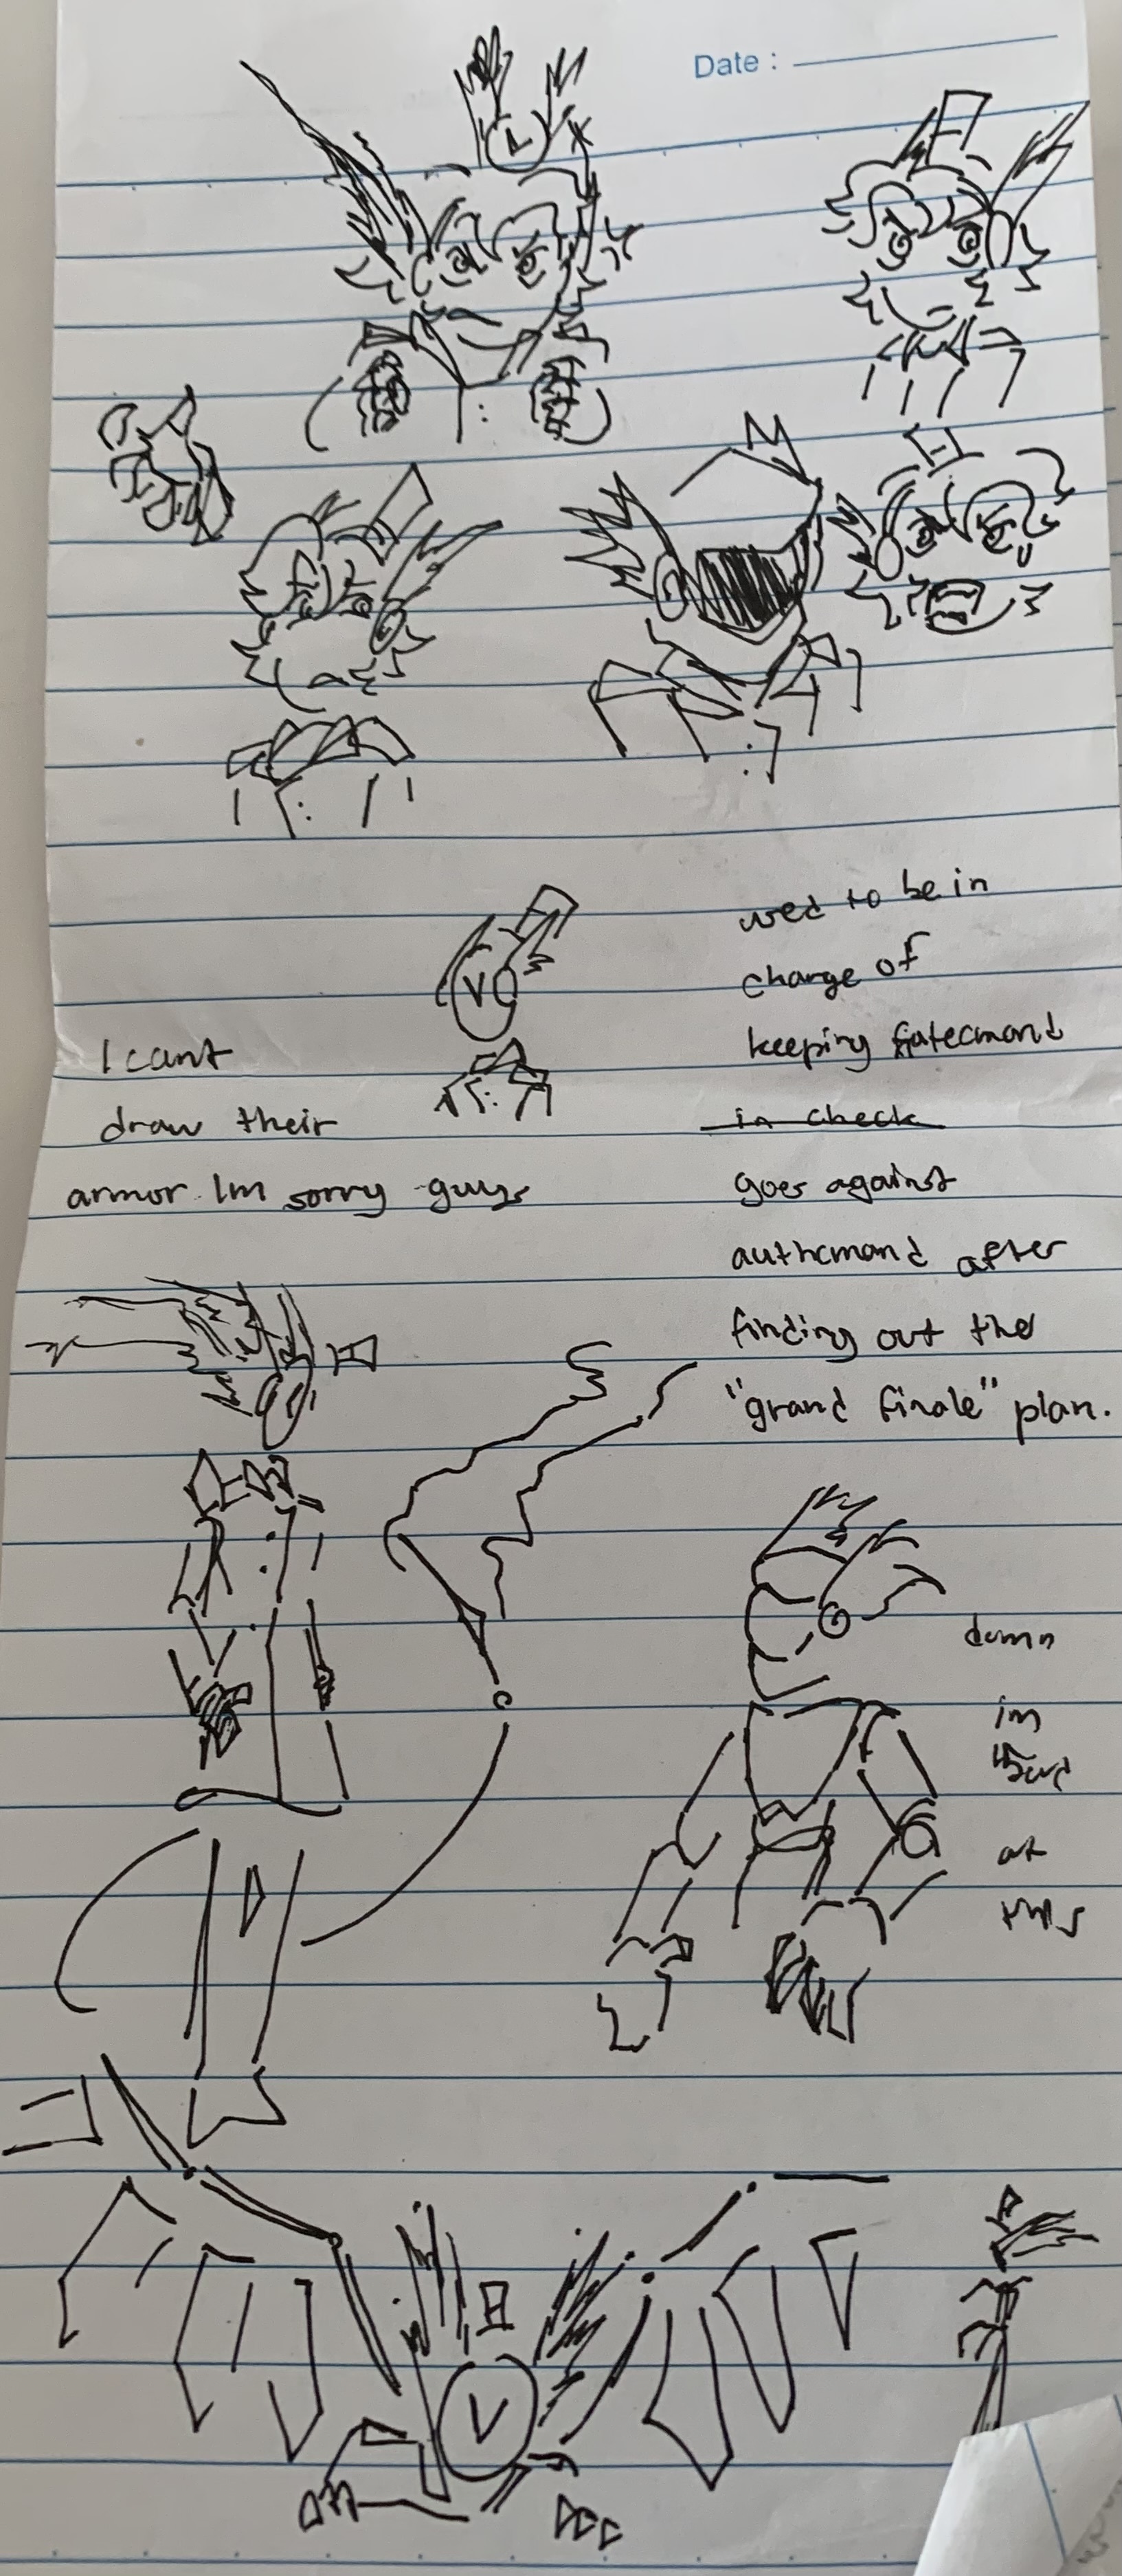 Date :
L
V
used to be in
charge of
keeping fatecmand
in check
goes against
authcmand after
finding out the
"grand finale" plan.
I cant
draw their
armor Im sorry guys
damn
im
at
this
V